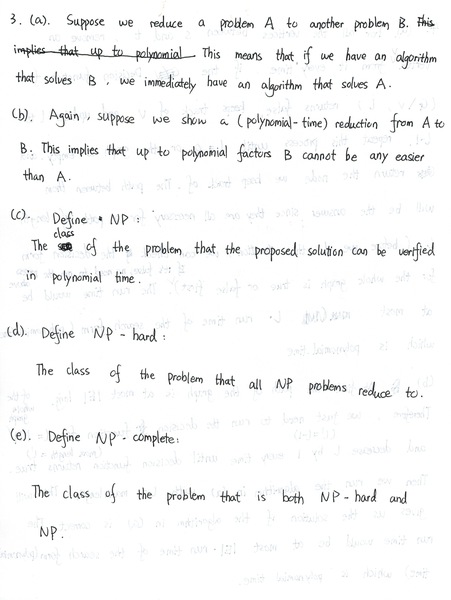 3. (a). Suppose we reduce a problem A to another problem B. This
implies that up to polynomial This means that if we have an algorithm
that solves B, we immediately have an algorithm that solves A.
(b). Again, suppose we show a (polynomial-time) reduction from A to
B. This implies that up to polynomial factors B cannot be any easier
than A.
(c). Define NP:
class
The of the problem that the proposed solution can be verified
in polynomial time.
(d). Define NP-hard:
The class of the problem that all NP problems reduce to.
(e). Define NP-complete:
The class of the problem that is both NP-hard and
NP.